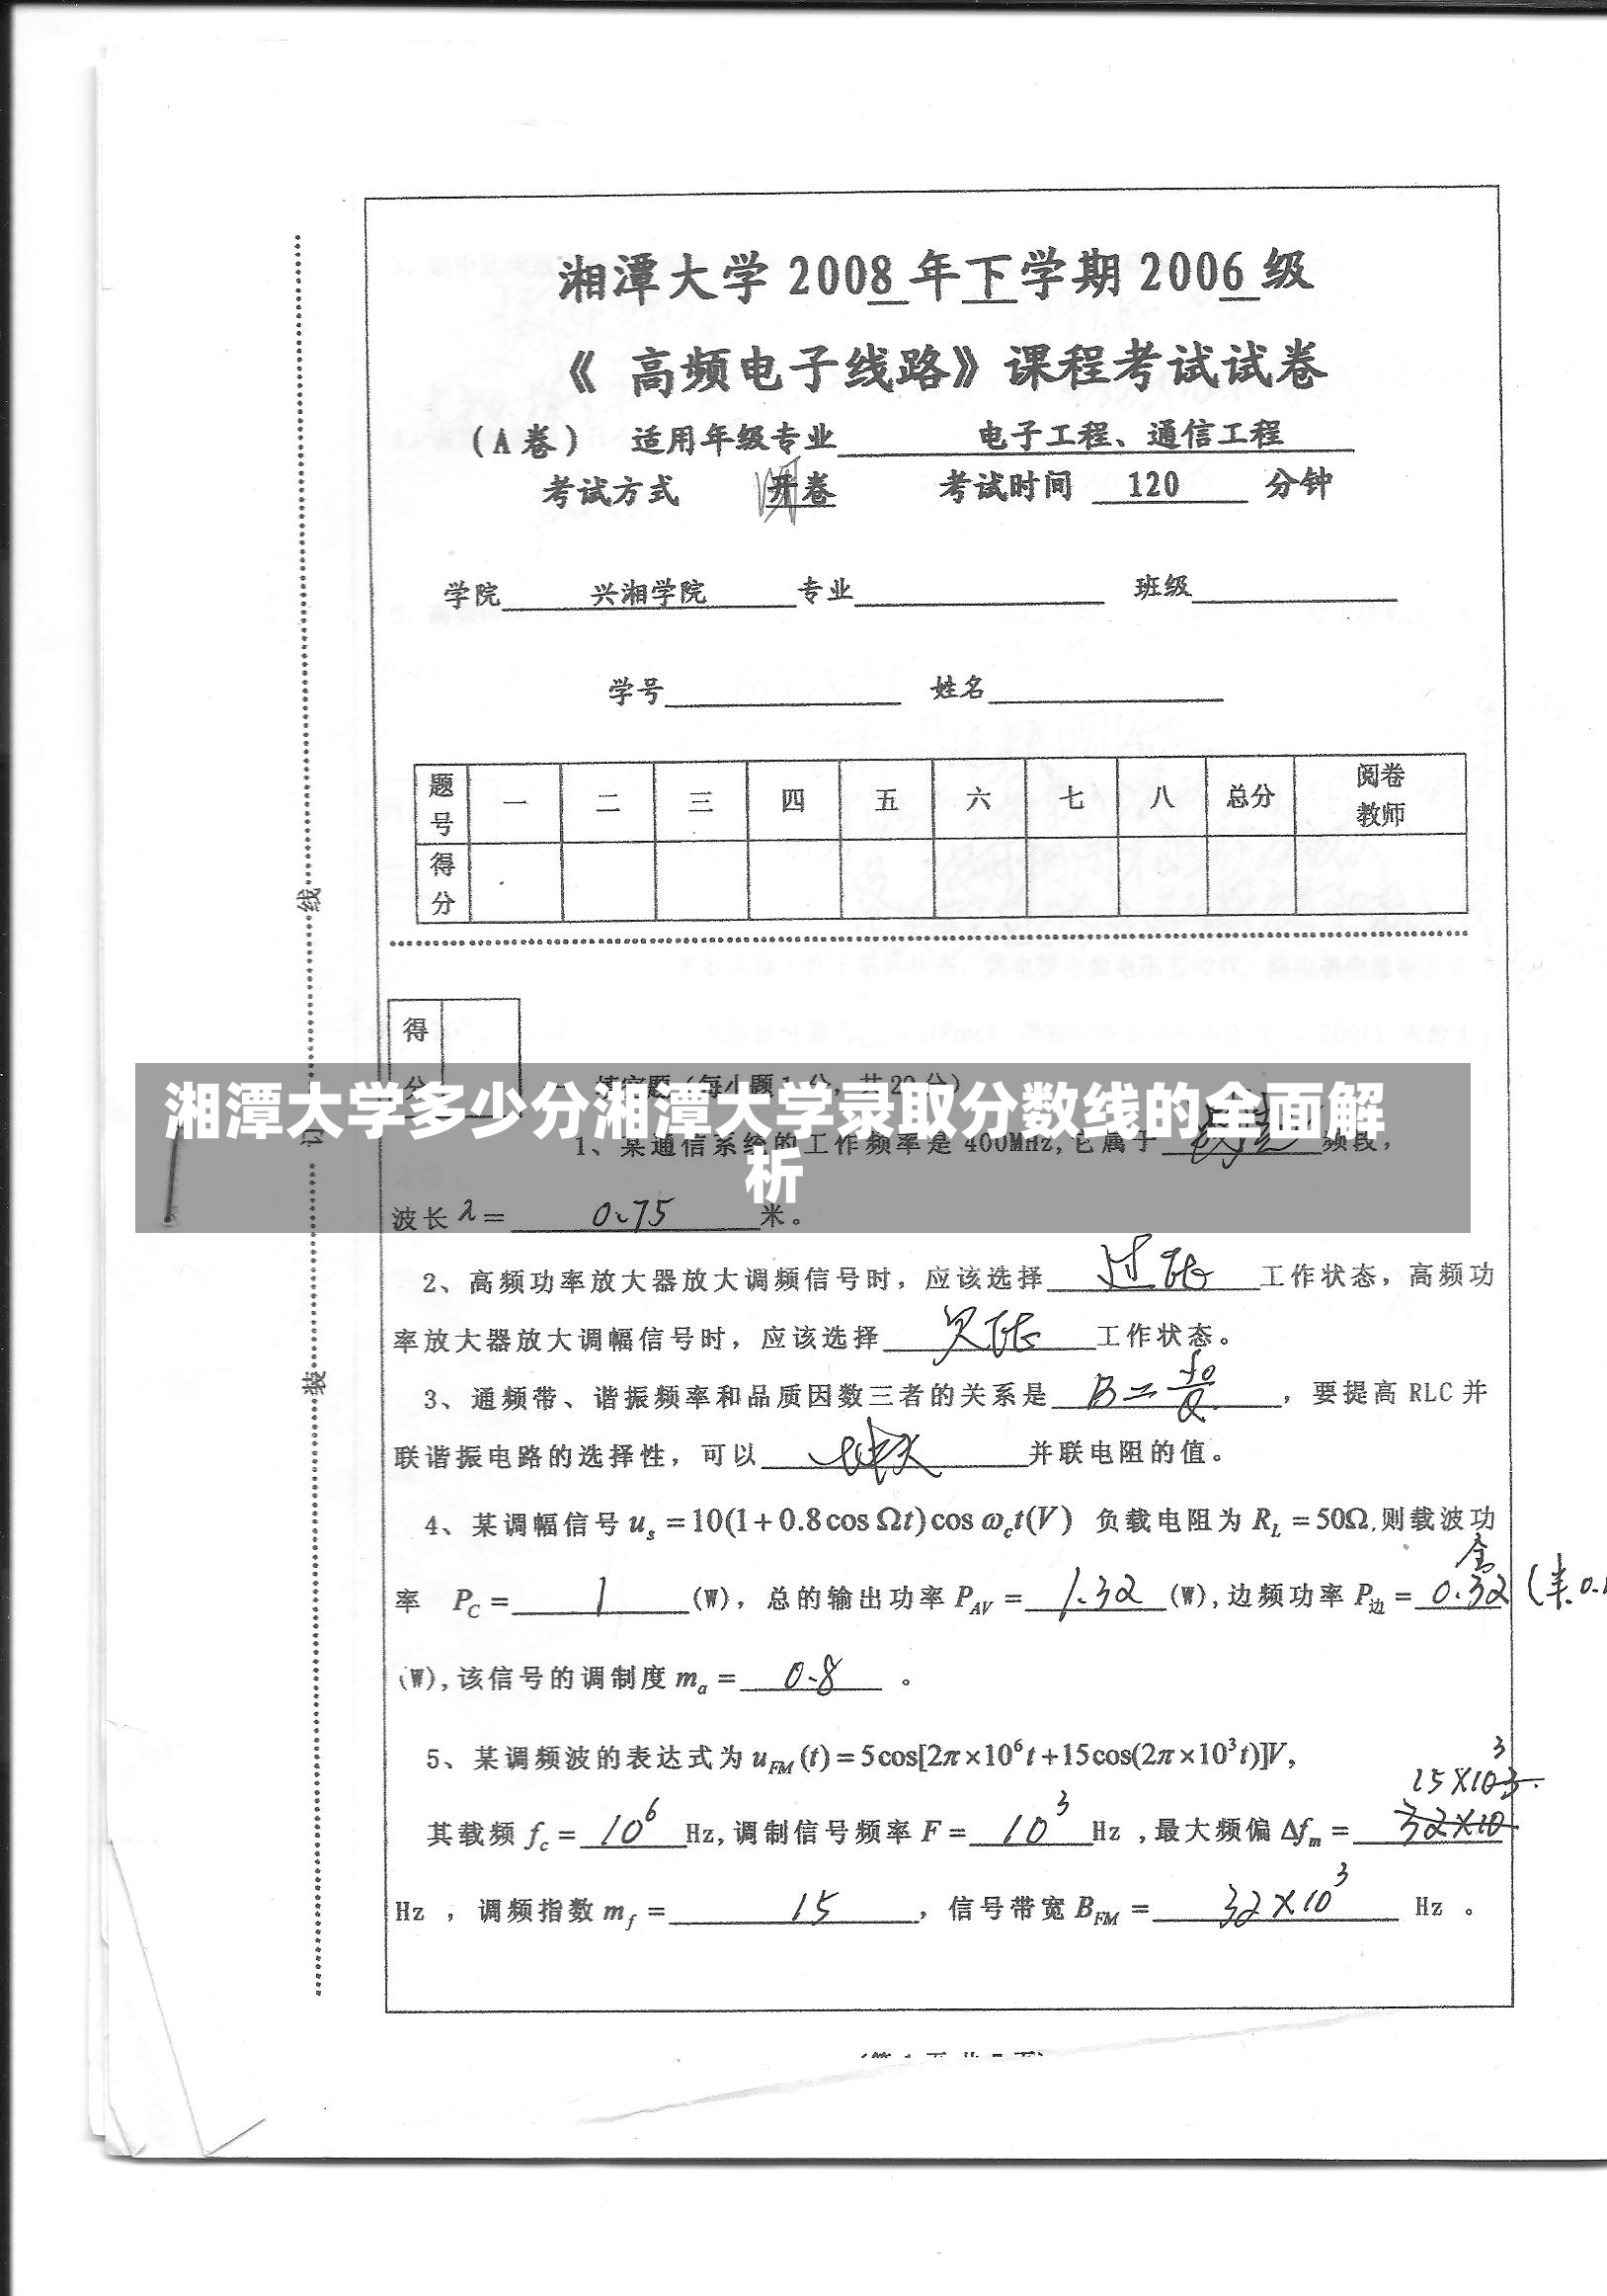 湘潭大学 2008 年下学期 2006 级
《 高频电子线路》课程考试试卷
(A卷) 适用年级专业 电子工程、通信工程
考试方式 开卷 考试时间 120 分钟
学院 兴湘学院 专业 班级
学号 姓名
题号 一 二 三 四 五 六 七 八 总分 阅卷教师
得分
线
订
装
得分
填空题(每小题1分,共20分)
湘潭大学多少分湘潭大学录取分数线的全面解
析
1、某通信系统的工作频率是 400MHz,它属于 频段,
波长 λ= 0.75 米。
2、高频功率放大器放大调频信号时,应该选择 过压 工作状态,高频功
率放大器放大调幅信号时,应该选择 欠压 工作状态。
3、通频带、谐振频率和品质因数三者的关系是 B=f0/Q ,要提高 RLC 并
联谐振电路的选择性,可以 并联电阻的值。
4、某调幅信号 us =10(1+0.8cosΩt)cosωct(V) 负载电阻为 RL =50Ω.则载波功
率 PC = 1 (W), 总的输出功率 PAV = 1.32 (W),边频功率 P边 = 0.32
(W),该信号的调制度 ma = 0.8 。
5、某调频波的表达式为 uFM(t)=5cos[2π×10⁶t+15cos(2π×10³t)]V,
15×10³
其载频 fc = 10⁶ Hz,调制信号频率 F = 10³ Hz ,最大频偏 Δfm = 32×10
Hz , 调频指数 mf = 15 , 信号带宽 BFM = 32×10³ Hz 。